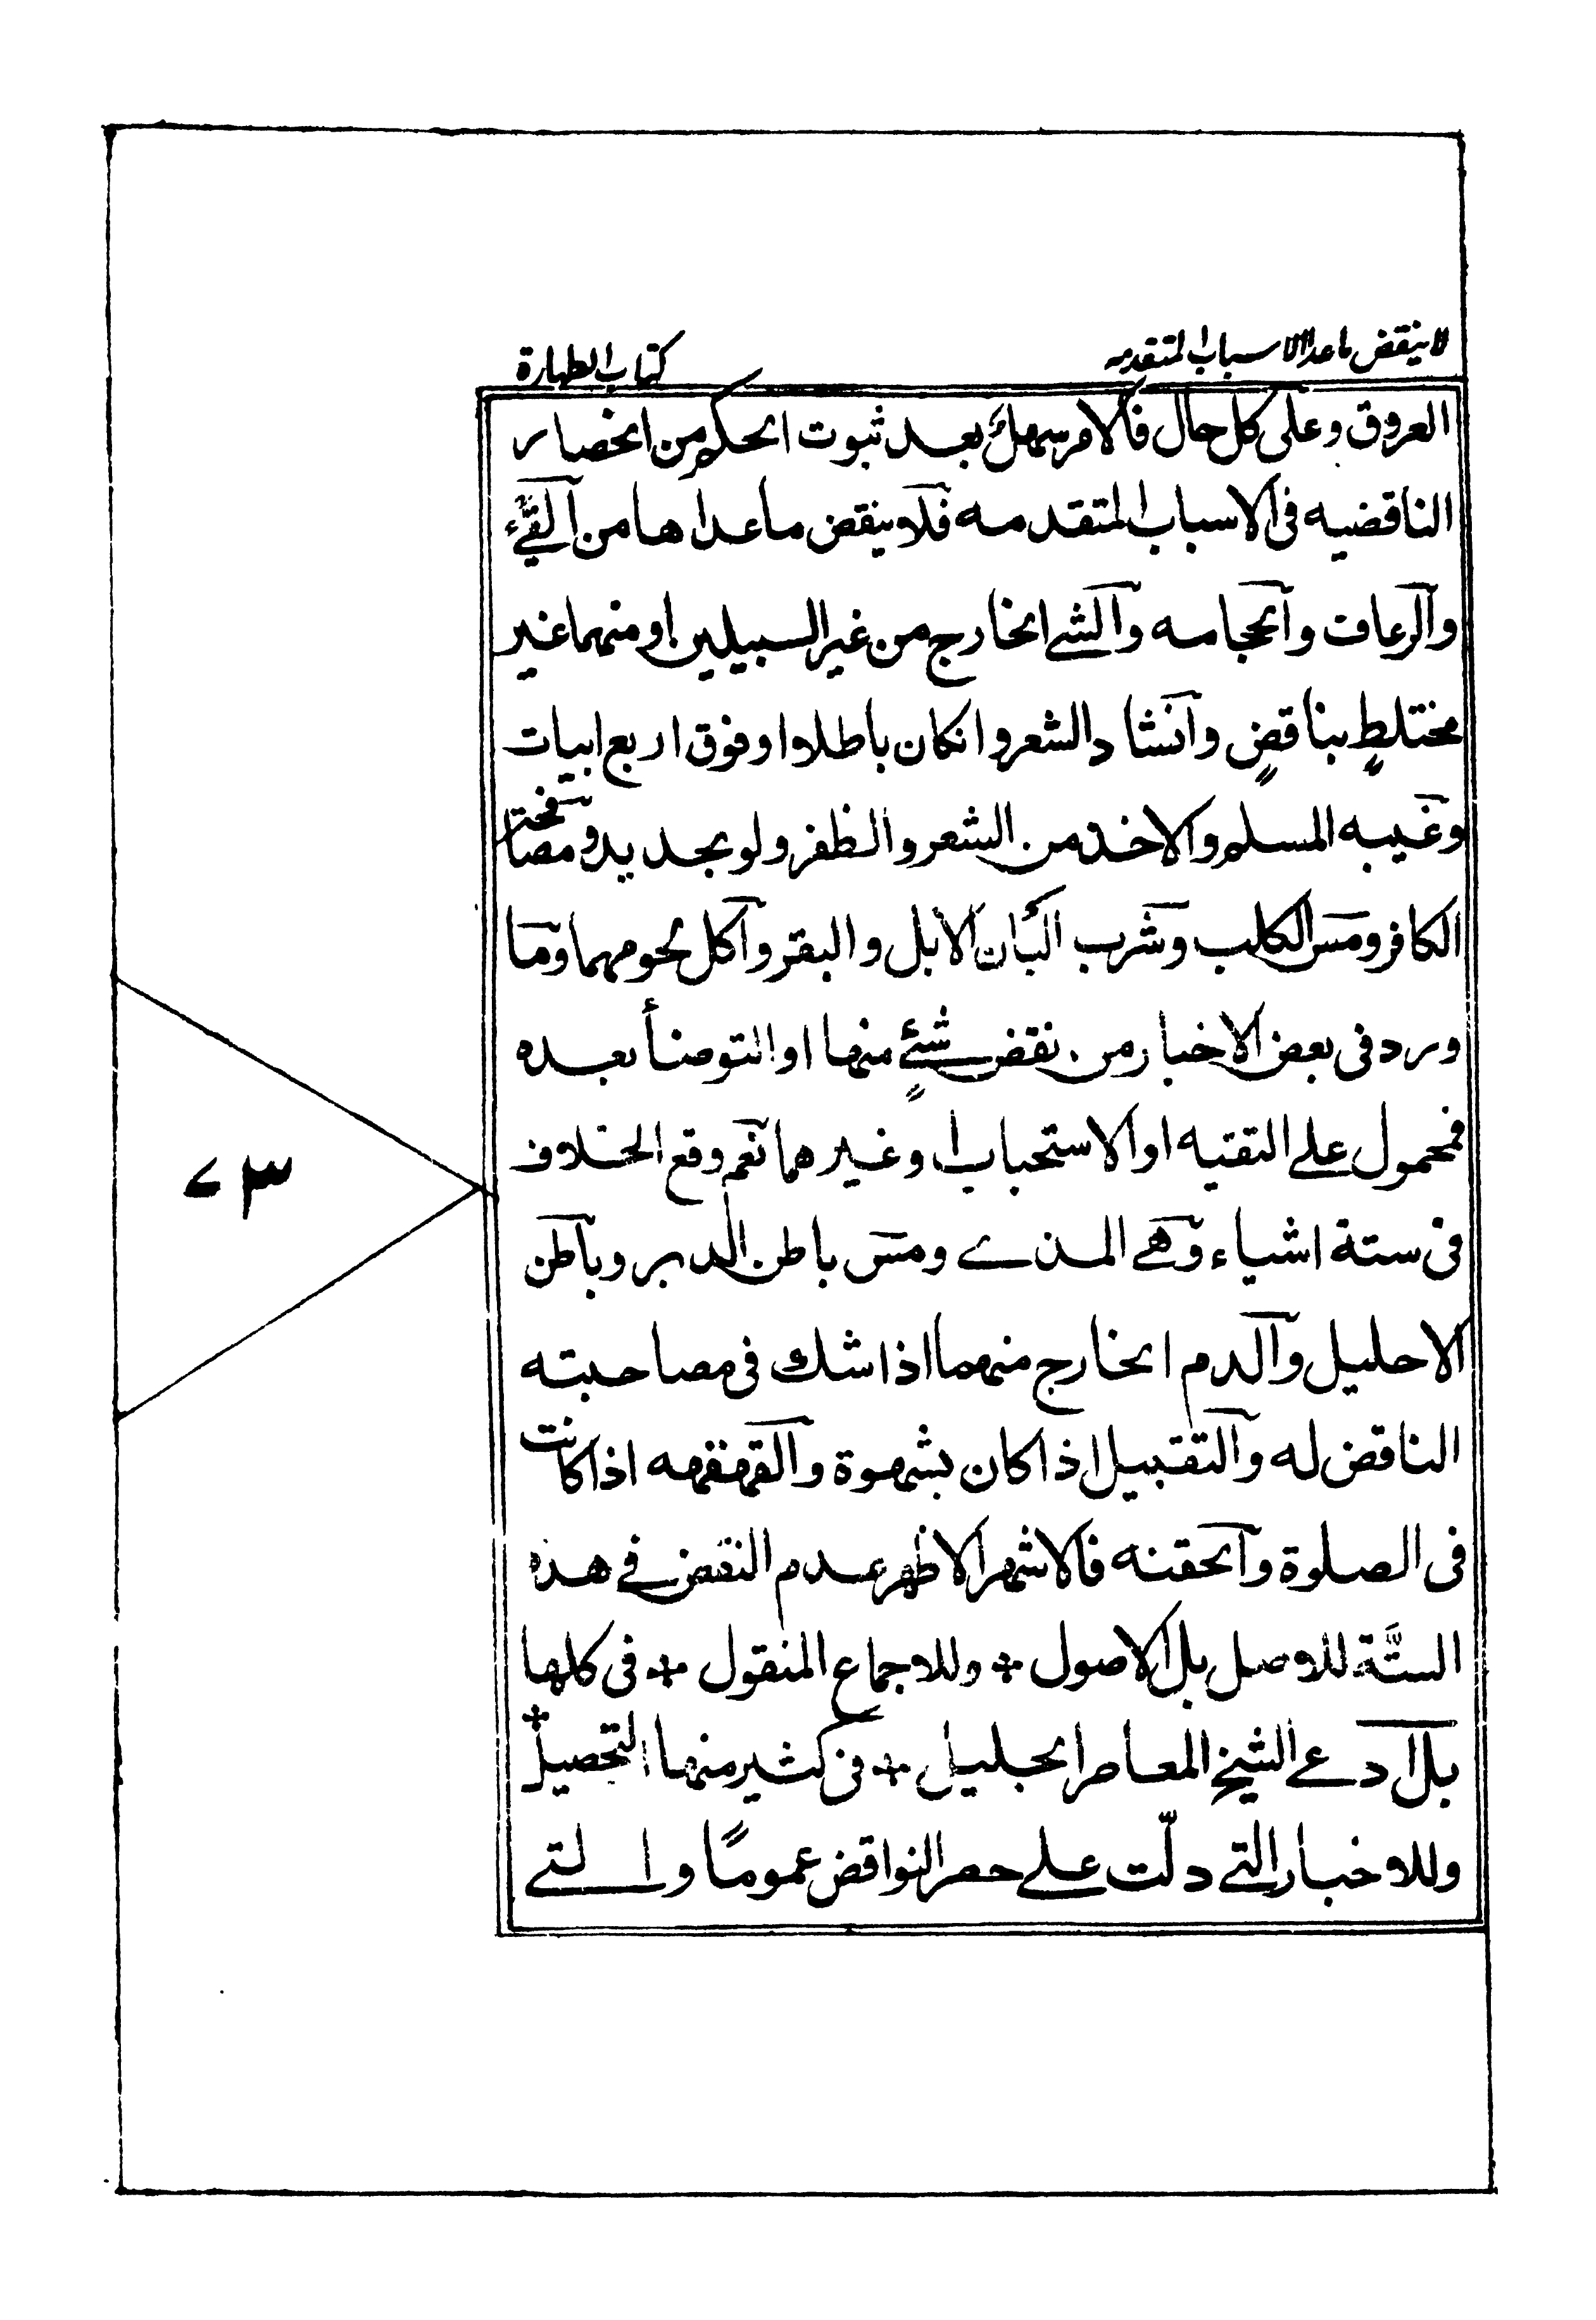 لا ينقض ماعدا الاسباب المتقدمه
كتاب الطهارة
العروق وعلى كل حال فالامر سهل بعد ثبوت الحكم من انحصار
الناقضيه فى الاسباب المتقدمه فلا ينقض ماعداها من القيء
والرعاف والحجامه والشے الخارج من غير السبيلين او منهما غير
مختلطٍ بناقضٍ وانشاد الشعر وانكان باطلا او فوق اربع ابيات
وغيبه المسلم والاخذ من الشعر والظفر ولو بحديد ومصافحة
الكافر ومس الكلب وشرب البان الابل والبقر واكل لحومهما وما
ورد فى بعض الاخبار من نقض شئٍ منها او التوضأ بعده
فمحمول علے التقيه او الاستحباب او غيرهما نعم وقع الخلاف
فى ستة اشياء وهے المذے ومس باطن الدبر وباطن
الاحليل والدم الخارج منهما اذا شك فى مصاحبته
الناقض له والتقبيل اذا كان بشهوة والقهقهه اذا كانت
فى الصلوة والحقنه فالاشهر الاظهر عدم النقض فے هذه
الستَّة للاصل بل الاصول + وللاجماع المنقول + فى كلها
بل ادعے الشيخ المعاصر الجليل + فى كثير منها التحصيل +
وللاخبار التے دلّت علے حصر النواقض عمومًا والتے
٧٣